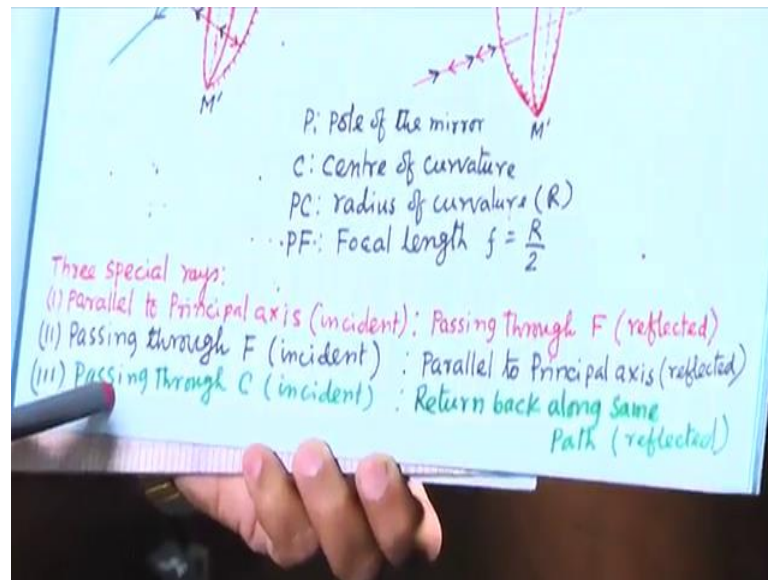 M'
M'
P: Pole of the mirror
C: Centre of curvature
PC: radius of curvature (R)
PF: Focal length f = R/2
Three special rays:
(I) Parallel to Principal axis (incident): Passing Through F (reflected)
(II) Passing through F (incident) : Parallel to Principal axis (reflected)
(III) Passing Through C (incident) : Return back along same
Path (reflected)